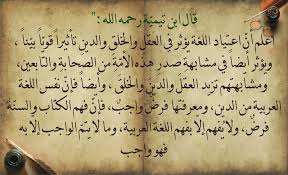 قال ابن تيمية رحمه الله : "
اعلم أن اعتياد اللغة يؤثر في العقل والخلق والدين تأثيرا قويا بينا ،
ويؤثر أيضا في مشابهة صدر هذه الأمة من الصحابة والتابعين،
ومشابهتهم تزيد العقل والدين والخلق ، وأيضا فإن نفس اللغة
العربية من الدين، ومعرفتها فرض واجب، فإن فهم الكتاب والسنة
فرض، ولا يفهم إلا بفهم اللغة العربية، وما لا يتم الواجب إلا به
فهو واجب